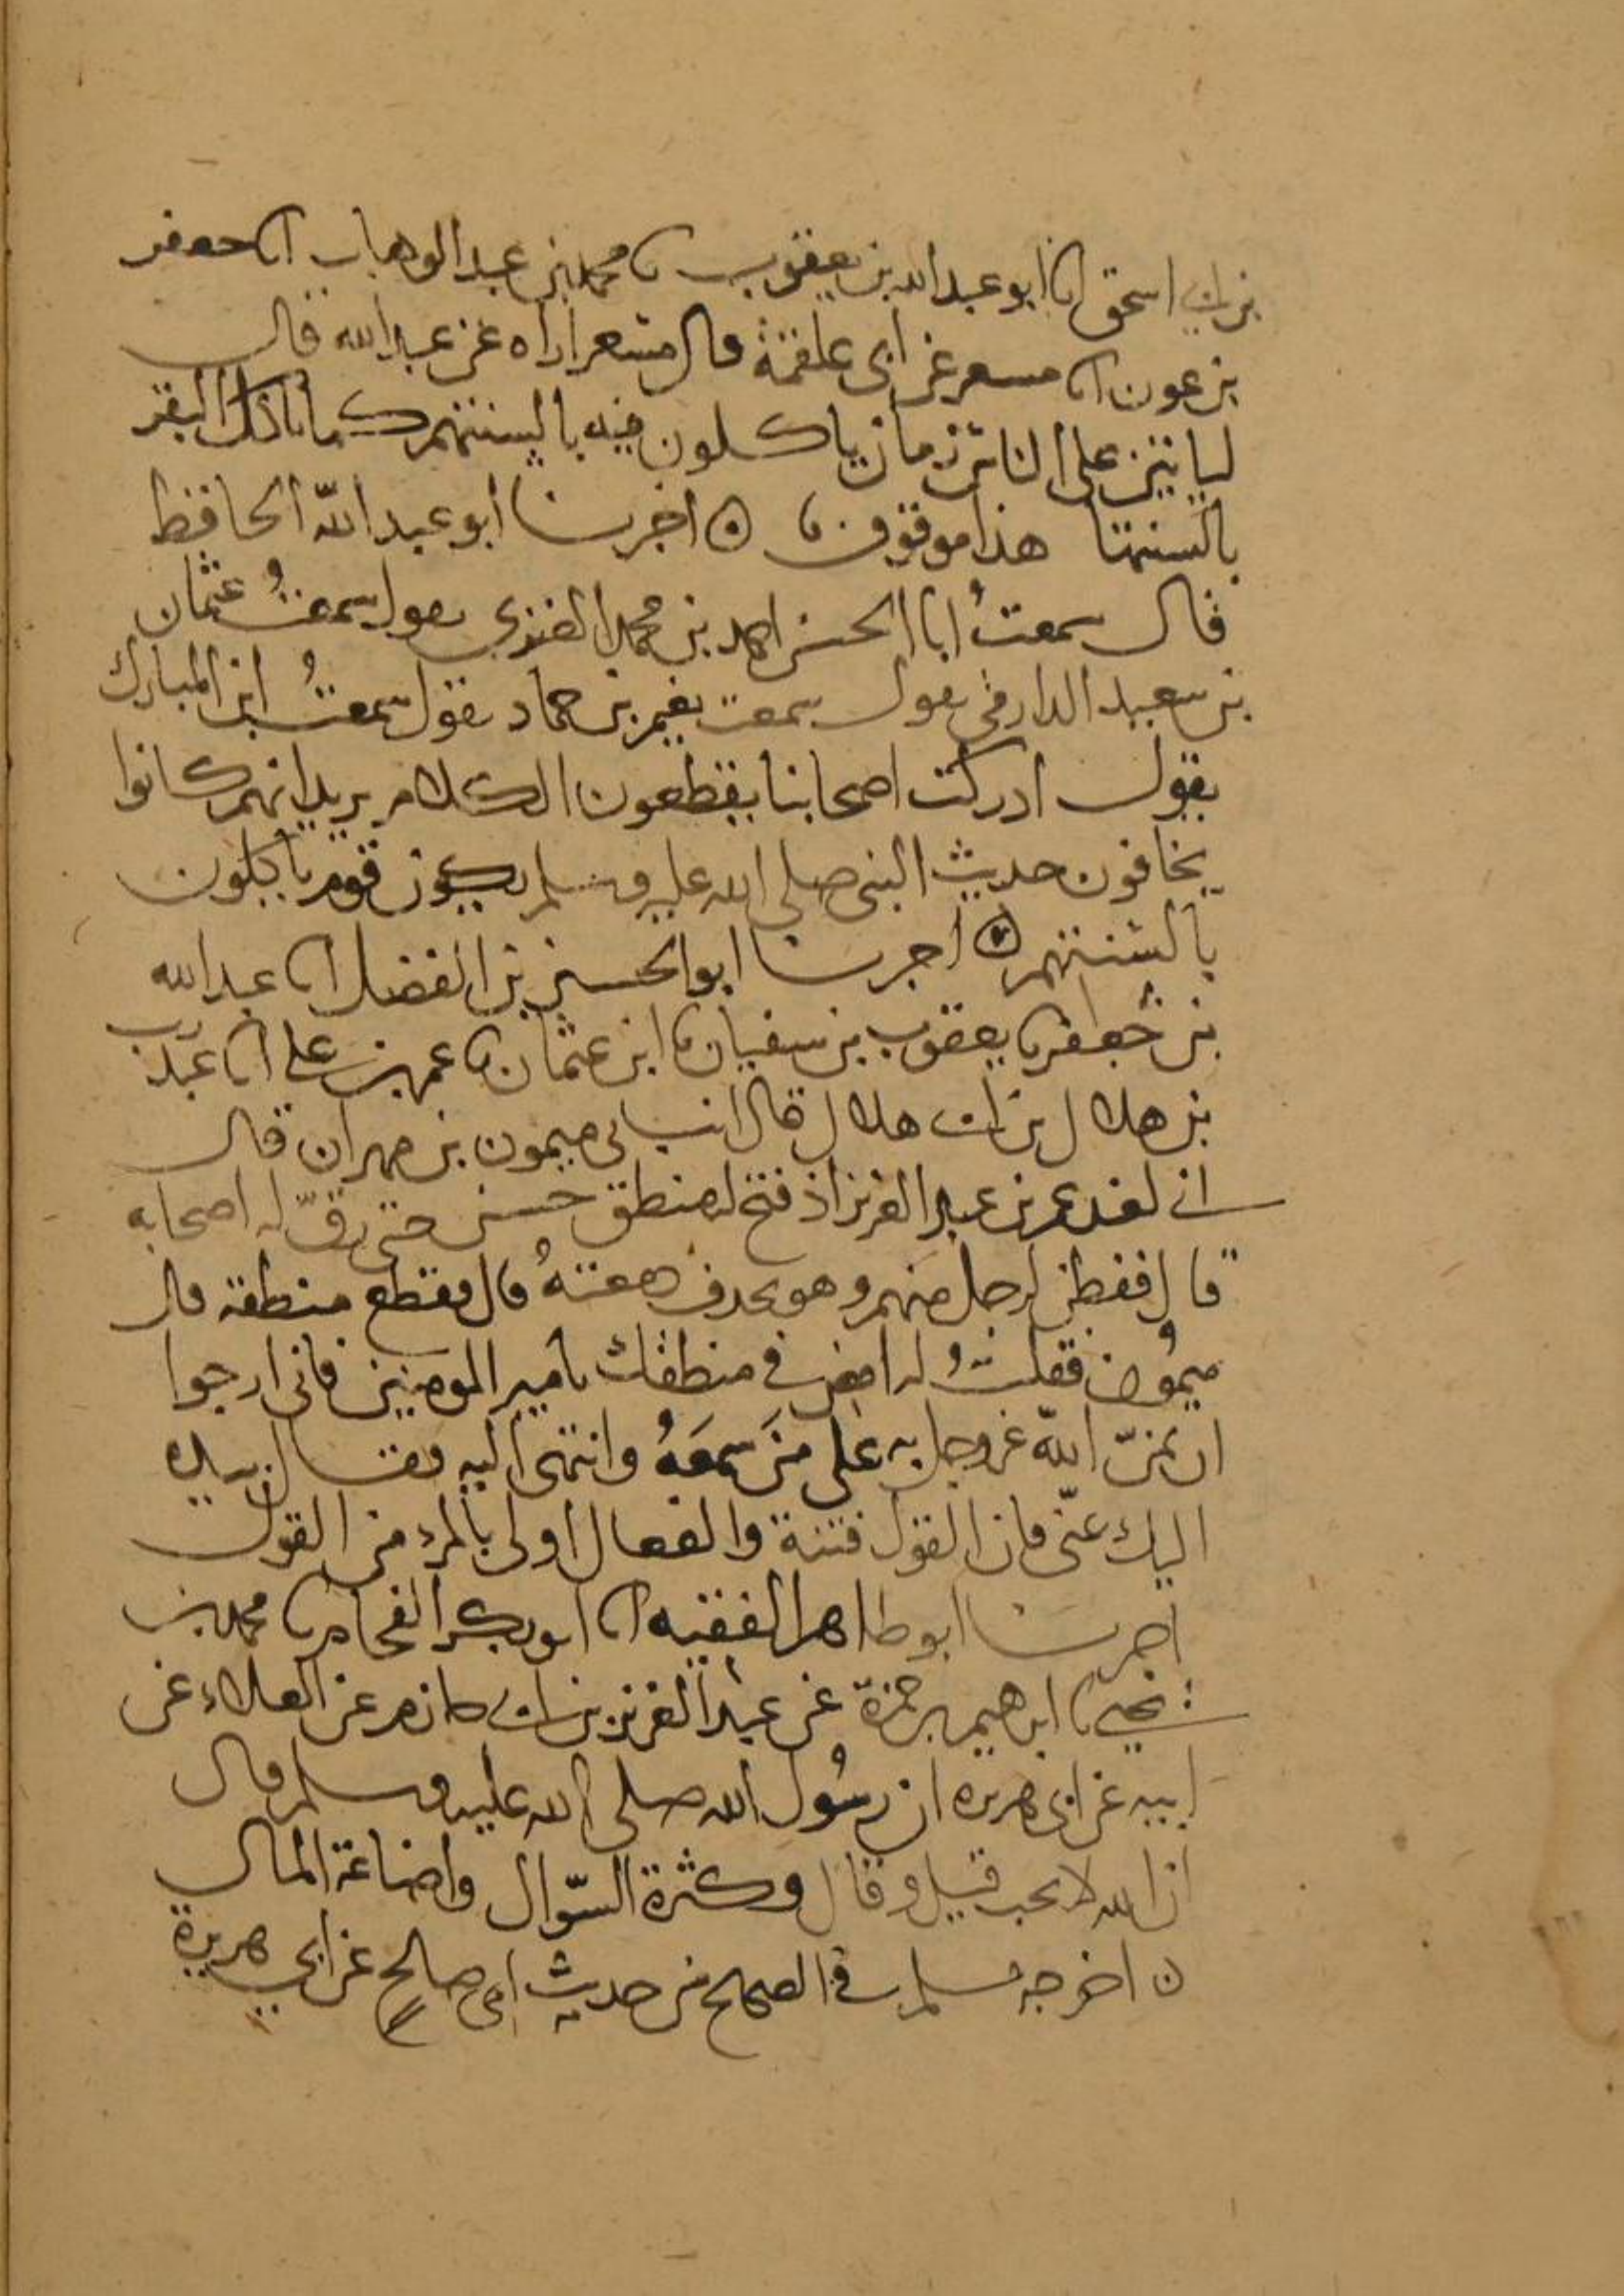 بن ابي اسحق انا ابو عبد الله بن يعقوب نا محمد بن عبد الوهاب انا جعفر
بن عون انا مسعر عن ابى علقمة قال مسعر اراه عن عبد الله قال
لياتين على الناس زمان ياكلون فيه بالسنتهم كما تاكل البقر
بالسنتها هذا موقوف اخبرنا ابو عبد الله الحافظ
قال سمعتُ ابا الحسن احمد بن محمد العنزي يقول سمعتُ عثمان
بن سعيد الدارمي يقول سمعت نعيم بن حماد يقول سمعتُ ابن المبارك
يقول ادركت اصحابنا يقطعون الكلام يريد انهم كانوا
يخافون حديث النبى صلى الله عليه وسلم يكون قوم ياكلون
بالسنتهم اخبرنا ابو الحسين بن الفضل انا عبد الله
بن جعفر نا يعقوب بن سفيان نا ابن عثمان نا عمر بن على انا عبد رب
بن هلال بن ابي هلال قال انباني ميمون بن مهران قال
اني لعند عمر بن عبد العزيز اذ فتح له منطق حسن حتى رقّ له اصحابه
قال ففطن لرجل منهم وهو يحذف دمعتهُ قال فقطع منطقه قال
ميمُون فقلتُ له امض في منطقك يامير المومنين فانى ارجوا
ان يمنّ الله عز وجل به على مَن سمعَهُ وانتهى اليه فقال بيده
اليك عنّى فان القول فتنة والفعال اولى بالمرء من القول
اخبرنا ابو طاهر الفقيه انا ابو بكر الفحام نا محمد بن
يحيى نا ابرهيم بن حمزة عن عبد العزيز بن ابي حازم عن العلاء عن
ابيه عن ابى هريره ان رسُول الله صلى الله عليه وسلم قال
ان الله لا يحب قيل وقال وكثرة السّوال واضاعة المال
ن اخرجه مسلم في الصحيح من حديث ابى صالح عن ابي هريرة